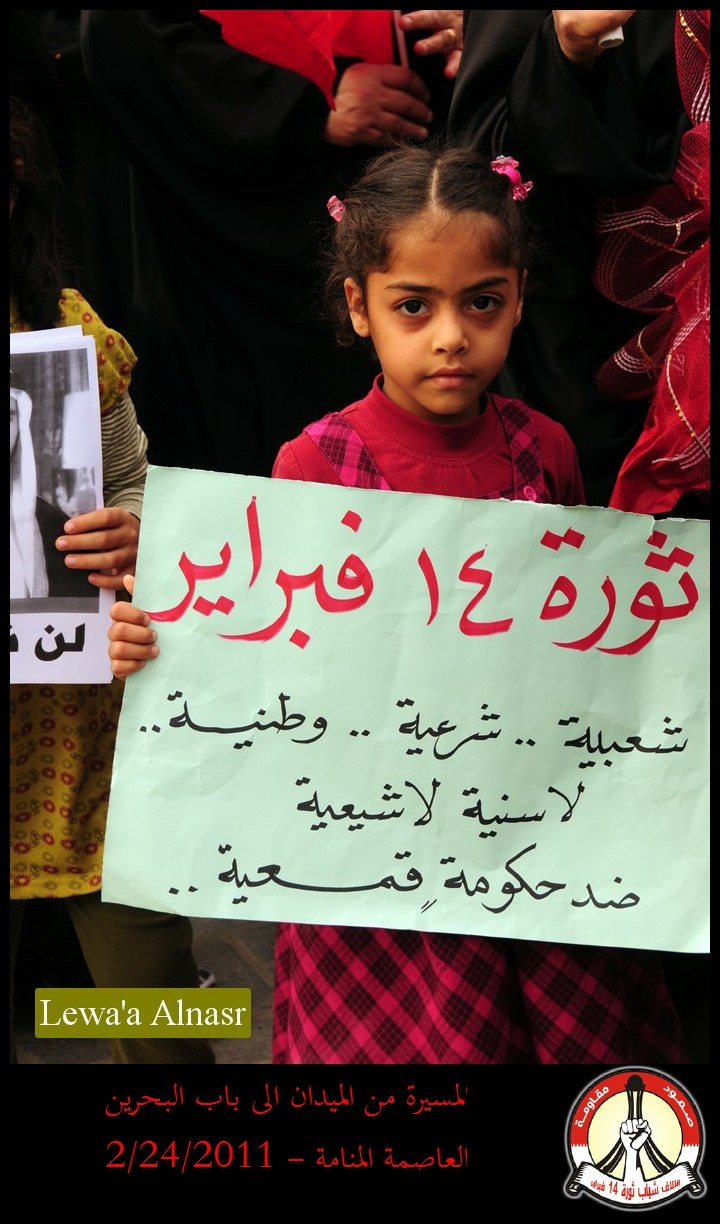 ثورة ١٤ فبراير
شعبية .. شرعية .. وطنيـة ..
لا سنية لا شيعية
ضد حكومةٍ قمـعية ..
لن
Lewa'a Alnasr
لمسيرة من الميدان الى باب البحرين
العاصمة المنامة – 2/24/2011
صمود
مقاومة
ائتلاف شباب ثورة 14 فبراير